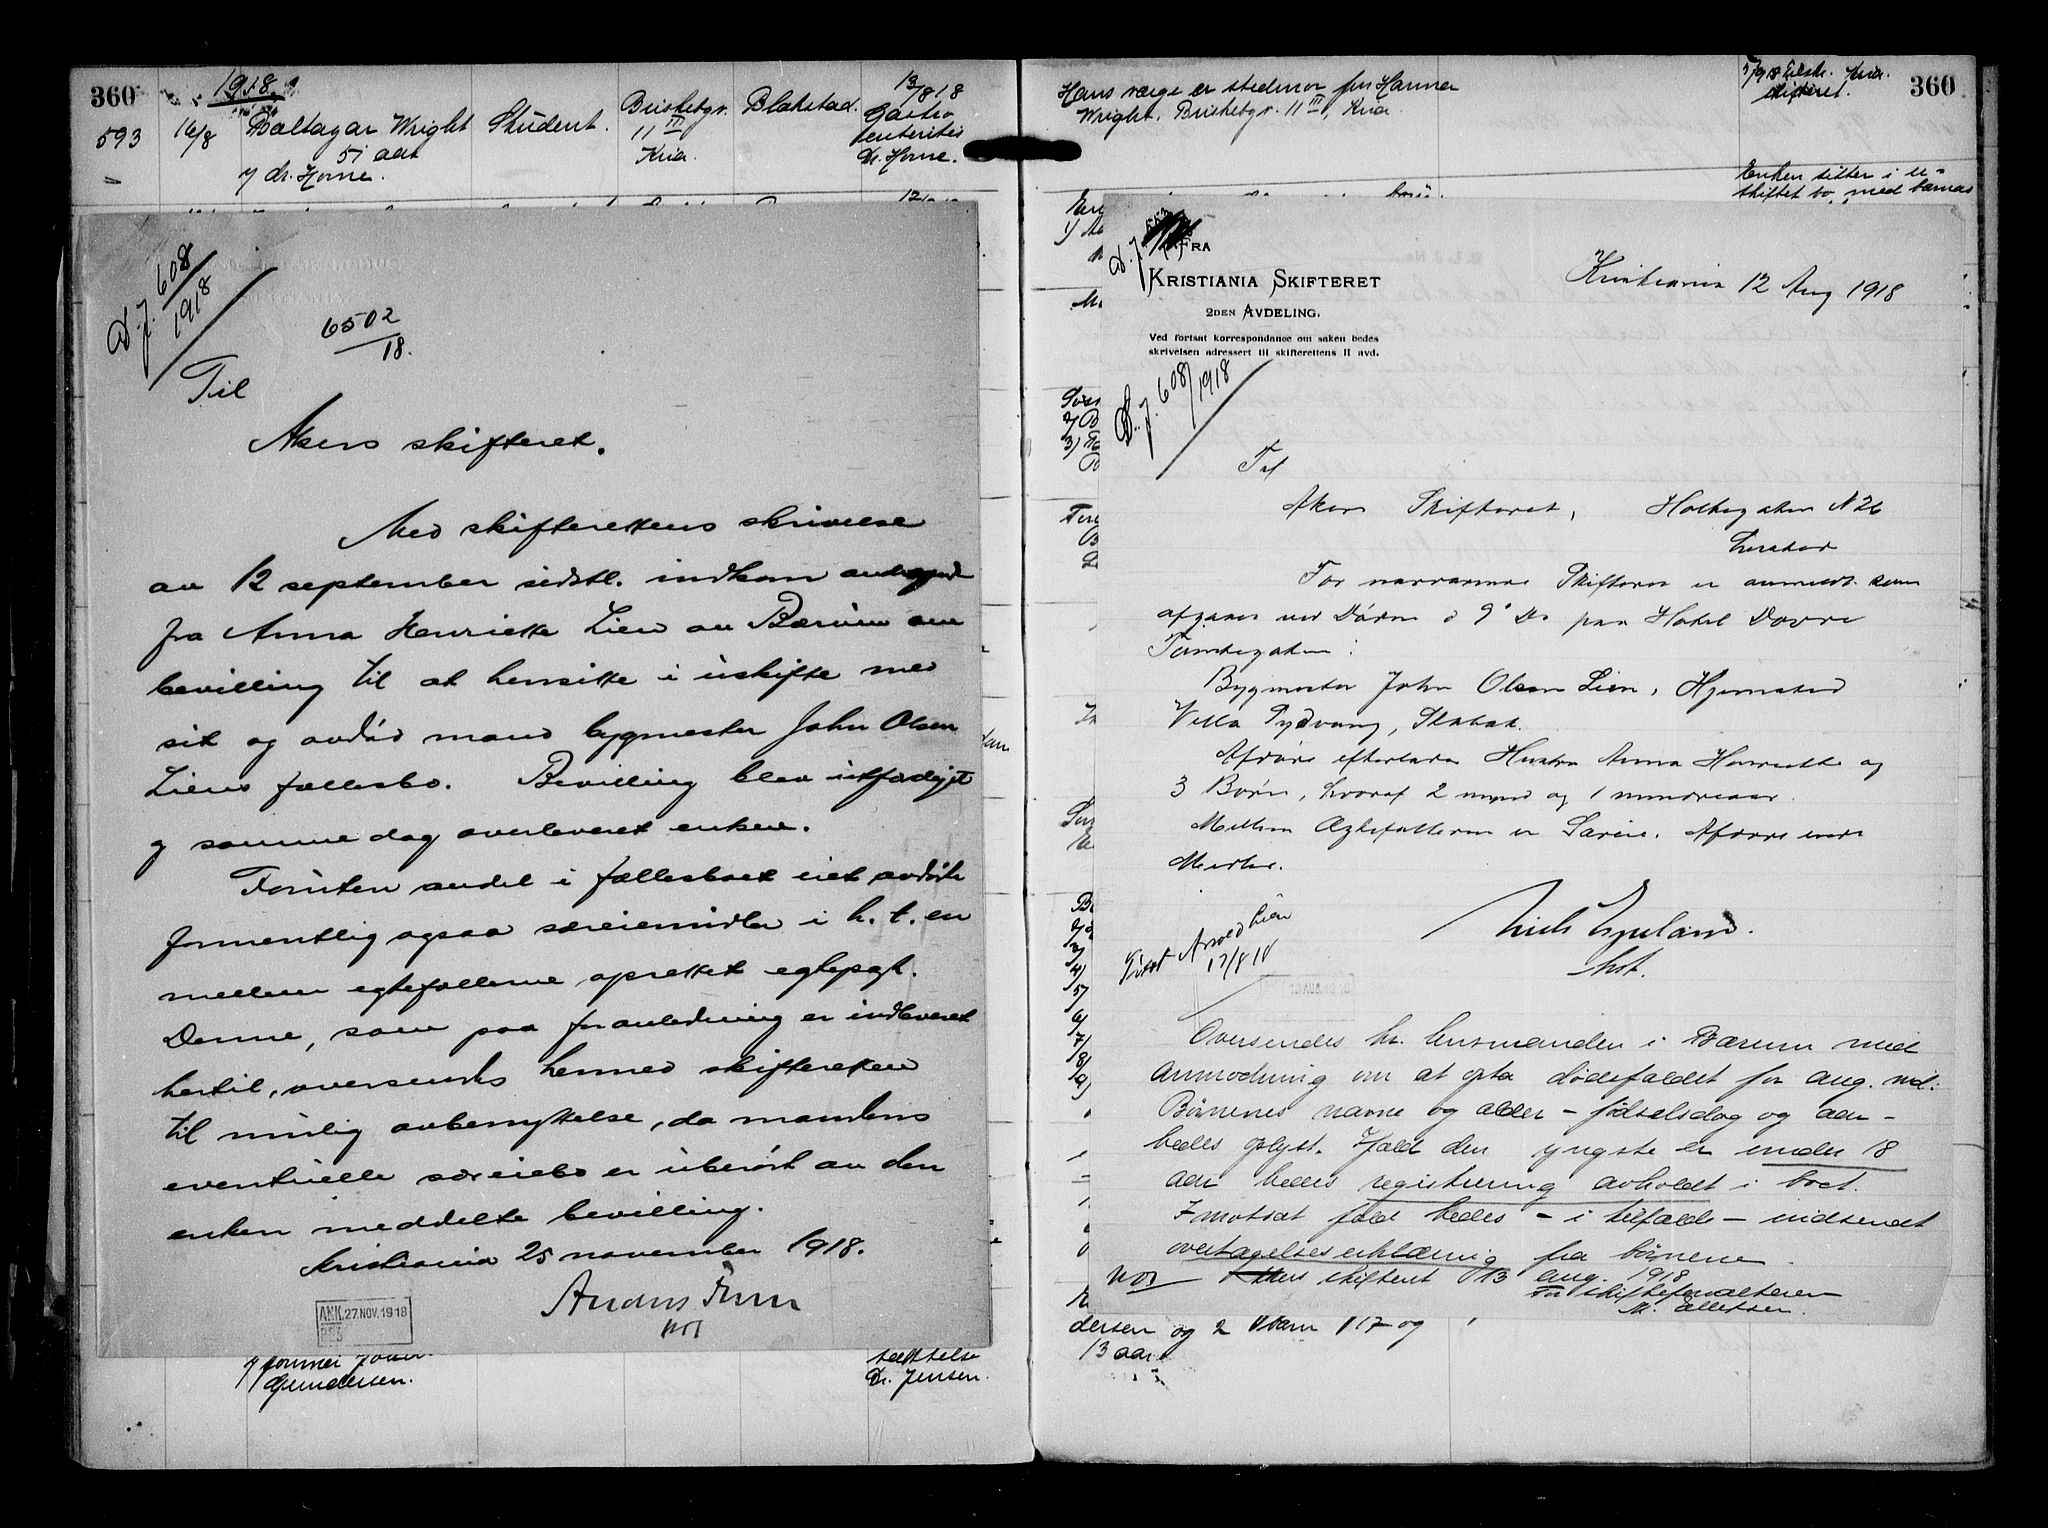 360
1918.
593
16/8
Baltazar Wright
51 aar
v/ dr. Horne.
Student.
Briskebygt.
11 III
Kria.
Blakstad.
13/8 18
Gastro
enterites
Dr. Horne.
D.J. 608/1918
6502/18.
Til
Akers skifteret.
Med skifterettens skrivelse
av 12 september sidstl. indkom andragende
fra Anna Henriette Lien av Bærum om
bevilling til at hensitte i uskifte med
sit og avdød mand bygmester John Olsen
Liens fællesbo. Bevilling blev utfærdiget
og samme dag overleveret enken.
Foruten andel i fællesboet eiet avdøde
formentlig ogsaa særeiemidler i h. t. en
mellem egtefællerne oprettet egtepagt.
Denne, som paa foranledning er indleveret
hertil, oversendes hermed skifteretten
til mulig avbenyttelse, da mandens
eventuelle særeiebo er uberørt av den
enken meddelte bevilling.
Kristiania 25 november 1918.
ANK. 27. NOV. 1918
v/ formd Johan
Gundersen.
tættelse
Dr. Jensen.
360
Hans værge er stedmor fru Hanna
Wright, Briskebygt. 11 III, Kria
5/9 18 tilskr. Kria.
skifteret.
Enken sitter i u-
skiftet bo med barnas
D.J.
FRA
KRISTIANIA SKIFTERET
2DEN AVDELING.
Ved fortsat korrespondance om saken bedes
skrivelsen adressert til skifterettens II avd.
Kristiania 12 Aug 1918
D.J. 608/1918
Til
Akers Skifteret, Holtegaten N 26
For nærværende Skifteret er anmeldt som
afgaaet ved Døden d 9' Ds paa Hotel Dovre
Tomtegaten:
Bygmester John Olsen Lien, Hjemsted
Villa Sydvang, Stabæk.
Afdøde efterlader Hustru Anna Henriette og
3 Børn, hvoraf 2 mynd og 1 mindreaar.
Mellem Ægtefællerne er Særeie. Afdøde
Arnold Lien
17/8 18
Oversendes hr. lensmanden i Bærum med
anmodning om at opta dødsfaldet for aug. md.
Børnenes navne og alder – fødselsdag og aar –
bedes oplyst. Ifald den yngste er under 18
aar bedes registrering avholdt i boet.
I motsat fald bedes – i tilfælde – indsendt
overtagelseserklæring fra børnene
Akers skifteret 13 aug. 1918
For skifteforvalteren
M. Ellefsen.
dersen og 2 barn 17 og
13 aar.